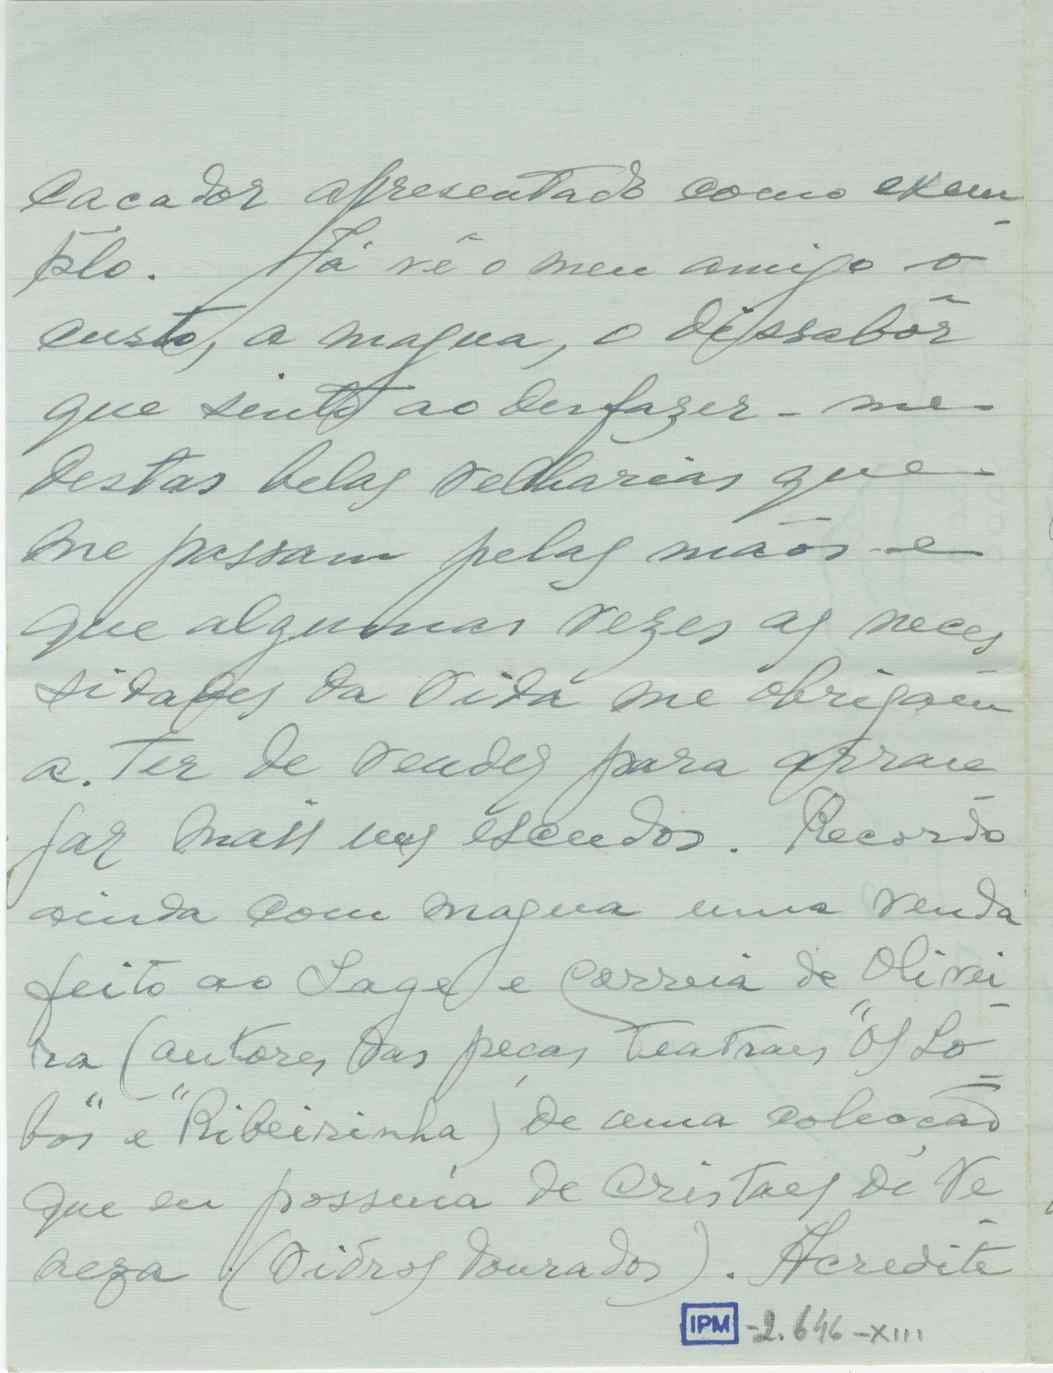 caçador apresentado como exem
plo. Já vê o meu amigo o
custo, a magua, o dissabôr
que sinto ao desfazer-me
destas belas velharias que
me passam pelas mãos e
que algumas vezes as neces
sidades da vida me obrigam
a ter de vender para arran
jar mais uns escudos. Recordo
ainda com magua uma venda
feito ao Lage e Correia de Olivei
ra (autores das peças teatraes "Os Lo
bos" e "Ribeirinha) de uma coleoção
que eu possuia de cristaes de Ve
neza (vidros dourados). Acredite
IPM -2.646-XIII